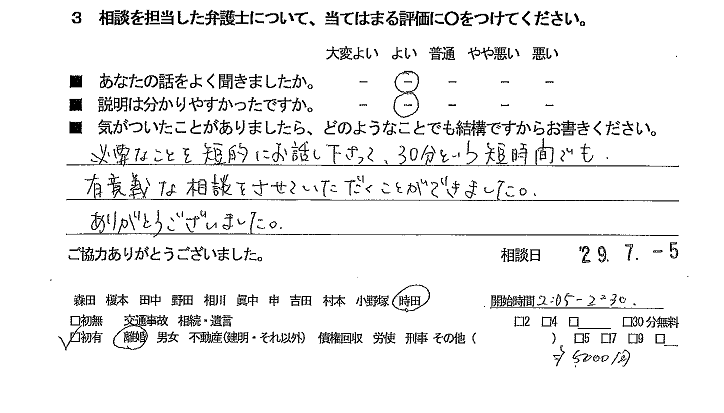 3 相談を担当した弁護士について、当てはまる評価に〇をつけてください。
大変よい よい 普通 やや悪い 悪い
■ あなたの話をよく聞きましたか。 － － － － －
■ 説明は分かりやすかったですか。 － － － － －
■ 気がついたことがありましたら、どのようなことでも結構ですからお書きください。
必要なことを短的にお話し下さって、30分という短時間でも、
有意義な相談をさせていただくことができました。
ありがとうございました。
ご協力ありがとうございました。 相談日 '29. 7. －5
森田 榎本 田中 野田 相川 眞中 申 吉田 村本 小野塚 時田 開始時間 2:05-2:30.
□初無 交通事故 相続・遺言 □2 □4 □ □30分無料
□初有 離婚 男女 不動産(建明・それ以外) 債権回収 労使 刑事 その他 ( ) □5 □7 □9 □
5000円